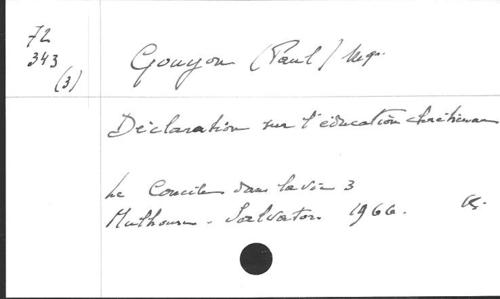 72
343
(3)
Gouyon (Paul) Mgr.
Déclaration sur l'éducation chrétienne
Le Concile dans la vie 3
Mulhouse - Salvator. 1966.